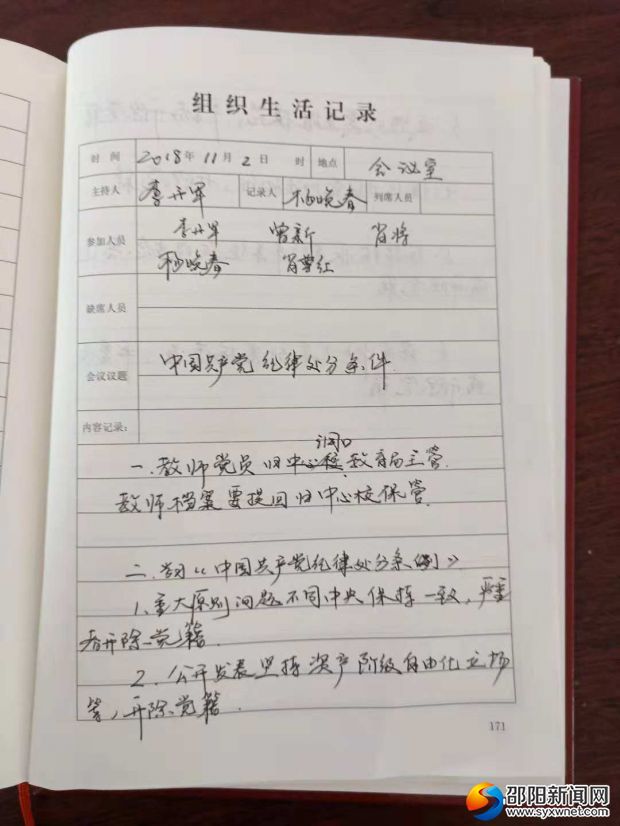 组织生活记录
时间 2018年11月2日 时 地点 会议室
主持人 李丹军 记录人 杨晚春 列席人员
参加人员 李丹军 曾新 肖将
杨晚春 肖
缺席人员
会议议题 中国共产党纪律处分条件
内容记录:
归口
一.教师党员归中心校教育局主管.
教师档案要提回归中心校保管.
二.学习《中国共产党纪律处分条例》
1.重大原则问题不同中央保持一致,严重
者开除党籍.
2.公开发表坚持资产阶级自由化立场
等,开除党籍.
171
邵阳新闻网
www.syxwnet.com